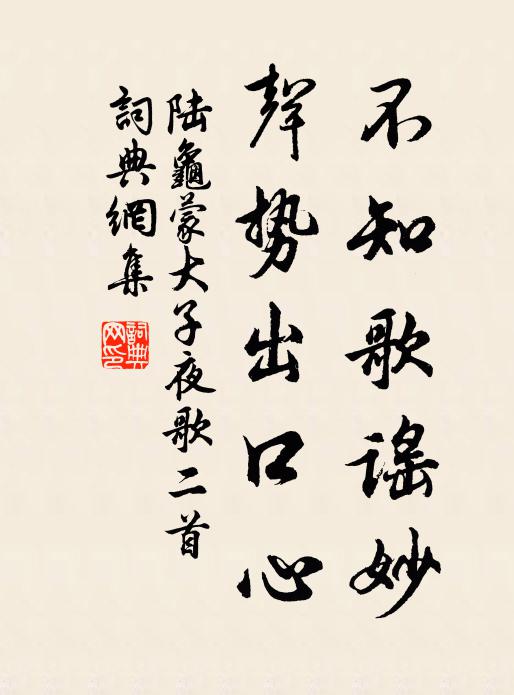 不知歌謠妙
聲势出口心
陆龜蒙大子夜歌二首
詞典網集
詞典网印